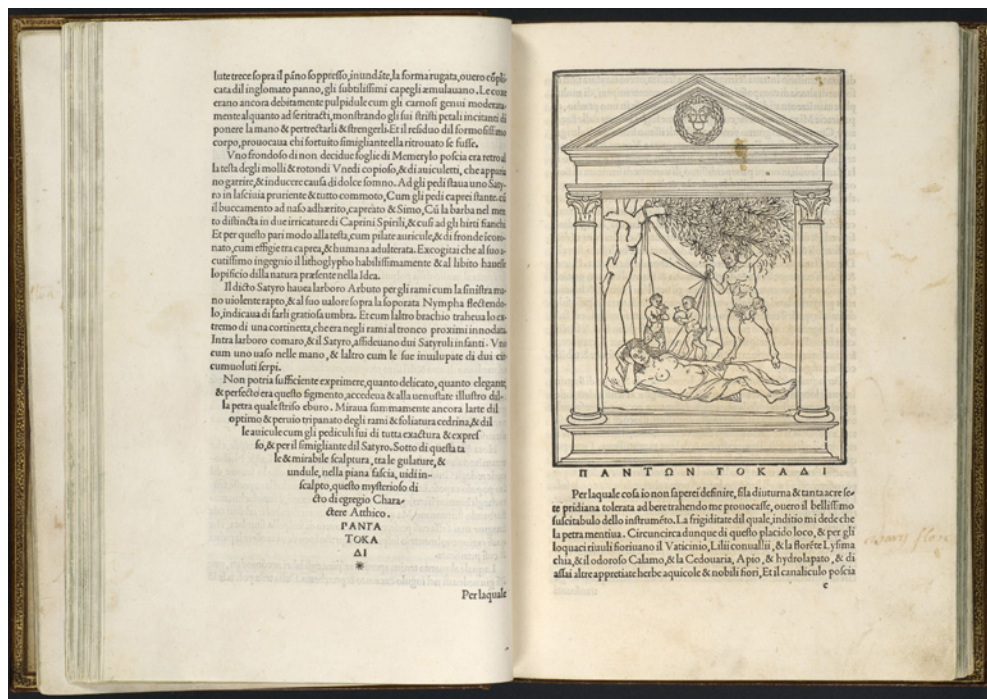 lute trece sopra il pãno soppresso, inundãte, la forma rugata, ouero cõpli-
cata dil inglomato panno, gli subtilissimi capegli æmulauano. Le coxe
erano ancora debitamente pulpidule cum gli carnosi genui moderata-
mente alquanto ad se ritracti, monstrando gli sui stristi petali incitanti di
ponere la mano & pertrectarli & strengerli. Et il residuo dil formosissimo
corpo, prouocaua chi fortuito simigliante ella ritrouato se fusse.
Vno frondoso di non decidue foglie di Memerylo poscia era retro al
la testa degli molli & rotondi Vnedi copioso, & di auiculetti, che appari-
no garrire, & inducere causa di dolce somno. Ad gli pedi staua uno Saty-
ro in lasciuia pruriente & tutto commoto, Cum gli pedi caprei stante. cũ
il buccamento ad naso adhærito, capreato & Simo, Cũ la barba nel men
to distincta in due irricature di Caprini Spirili, & cusi ad gli hirti fianchi
Et per questo pari modo alla testa, cum pilate auricule, & di fronde icoro-
nato, cum effigie tra caprea, & humana adulterata. Excogitai che al suo a-
cutissimo ingegnio il lithoglypho habilissimamente & al libito hauesse
lopificio dilla natura præsente nella Idea.
Il dicto Satyro hauea larboro Arbuto per gli rami cum la sinistra ma-
no uiolente rapto, & al suo ualore sopra la soporata Nympha flectendo-
lo, indicaua di farli gratiosa umbra. Et cum laltro brachio traheua lo ex-
tremo di una cortinetta, che era negli rami al tronco proximi innodata.
Intra larboro comaro, & il Satyro, assideuano dui Satyruli infanti. Vno
cum uno uaso nelle mano, & laltro cum le sue inuilupate di dui cir-
cumuoluti serpi.
Non potria sufficiente exprimere, quanto delicato, quanto elegante,
& perfecto era questo figmento, accedeua & alla uenustate illustro dil-
la petra quale striso eburo. Miraua summamente ancora larte dil
optimo & peruio tripanato degli rami & foliatura cedrina, & dil
le auicule cum gli pediculi sui di tutta exactura & expres
so, & per il simigliante dil Satyro. Sotto di questa ta
le & mirabile scalptura, tra le gulature, &
undule, nella piana fascia, uidi in-
scalpto, questo mysterioso di
cto di egregio Chara-
ctere Atthico.
ΡΑΝΤΑ
ΤΟΚΑ
ΔΙ
Per laquale
ΠΑΝΤΩΝ ΤΟΚΑΔΙ
Per laquale cosa io non saperei definire, si la diuturna & tanta acre se-
te pridiana tolerata ad bere trahendo me prouocasse, ouero il bellissimo
suscitabulo dello instrumẽto. La frigiditate dil quale, inditio mi dede che
la petra mentiua. Circuncirca dunque di questo placido loco, & per gli
loquaci riuuli fioriuano il Vaticinio, Lilii conuallii, & la florẽte Lysima
chia, & il odoroso Calamo, & la Cedouaria, Apio, & hydrolapato, & di
assai altre appretiate herbe aquicole & nobili fiori, Et il canaliculo poscia
c